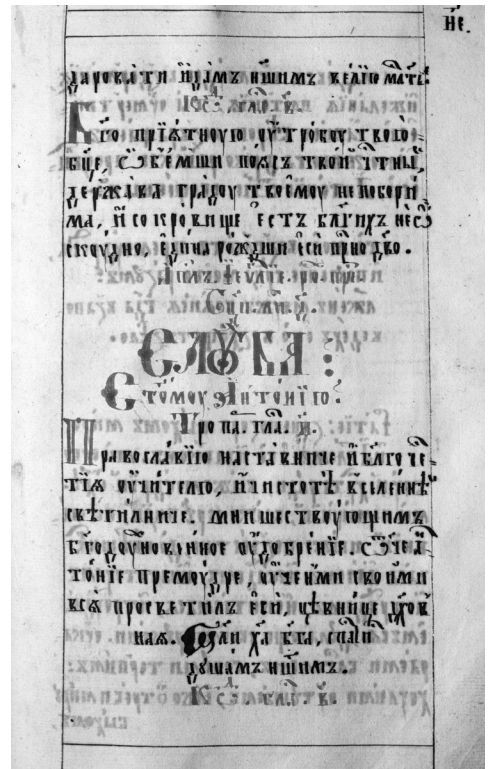 не.
даровати и҆ дꙋшамъ нашимъ велїю мл҃ть.
Ко҇, глас, в҃.
Ꙗко прїѧтною оутробоу твою
бц҃е, ѿбемши поѧсъ твои чтⷩ҇ыи,
держава градоу твоемоу непобори
ма, и҆ сокровище естъ бл҃гихъ неѿ
скоудно, едина рождши еси прⷭ҇но дв҃о.
СЛꙋЖБА :
Ст҃омоу Антонїю.
Тропа. гла. и҃.
Православїю наставниче и҆ благоче
тїѧ оучителю, и҆ чистотѣ вселеннѣи
свѣтилниче. мнишествоующимъ
бг҃одоухновенное оудобренїе. Ѿче ан
тонїе премоудре, оученми своими
всѧ просветилъ еси, цѣвнице дх҃ов
наѧ. Моли хⷭ҇а бг҃а, спⷭ҇ти
душамъ ншимъ.
Ко҇, глас, в҃.